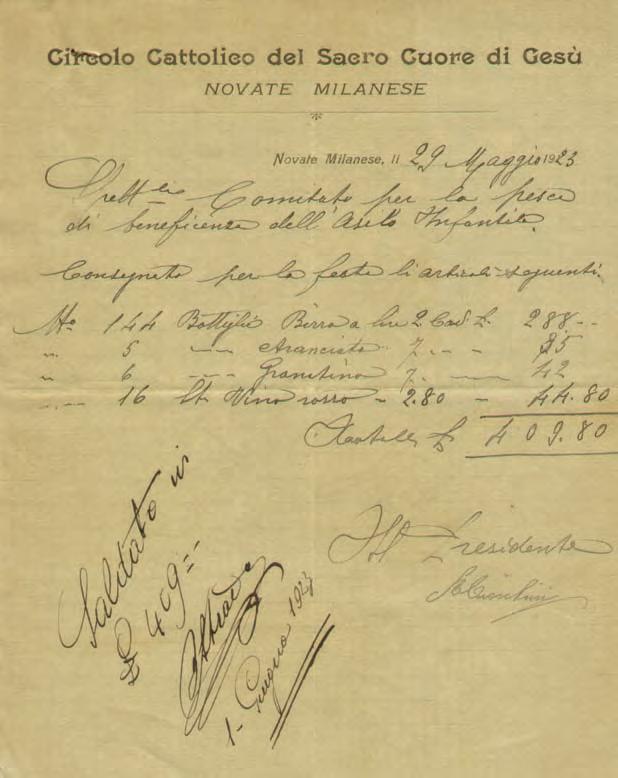 Circolo Cattolico del Sacro Cuore di Gesù
NOVATE MILANESE
Novate Milanese, li 29 Maggio 1923
Comitato per la pesca
di beneficenza dell' Asilo Infantile.
Consegnato per la festa li articoli seguenti.
No 144 Bottiglie Birra a lire 2 Cad £. 288.--
" 5 --- Aranciata 7. - - 35
" 6 --- Granatina 7. --- 42
16 Lt. Vino rosso - 2.80 - 44.80
Totale £ 409.80
Il Presidente
Saldato in
£ 409.=
1- Giugno 192